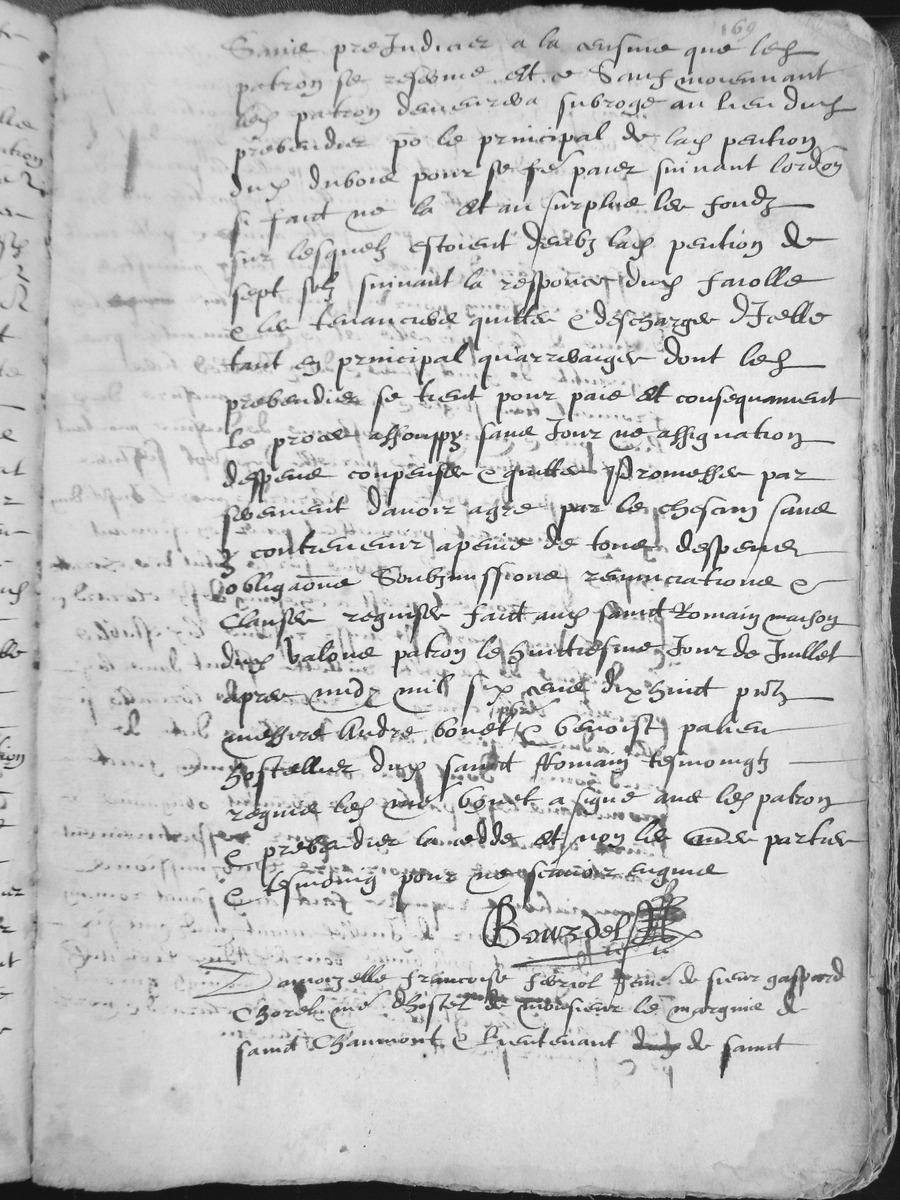 169
Sans preJudicier a la censive que led
patron se reserve et ce Sauf moiennant
led patron demeurera subrogé au lieu dud
prebendier po le principal de lad pention
dud duboie pour se fe paier suivant lordon
si faict ne la et au surplus les fondz
sur lesquelz estoient deubz lad pention de
sept solz suivant la responce dud farolle
& les tenanciers quittes & descharges dIcelle
tant en principal qu'arreraiges dont led
prebendier se tient pour paié et consequamment
le proces assouppy sans Jour ne assignation
despens conpenses & quittes promesses par
serement davoir agre par le chescun sans
y contrevenir a peine de tous despens
obligaons Soubzmissions renunciations &
Clauses requises faict aud sainct Romain maison
dud valous patron le huitiesme Jour de Juillet
apres midy mil six cens dix huict pntz
messire Andre bonet pbre & benoist palien
hostellier dud sainct Romain tesmoingtz
requis led me bonet a signe avec led patron
& prebendier la cedde et non les aues parties
& tesmoing pour ne scavoir enquis
Bourdel
Damoizelle francoise feriol feme de sieur gaspard
Chorel me dhostel de monsieur le marquis de
sainct Chaumont & lieutenant de sainct